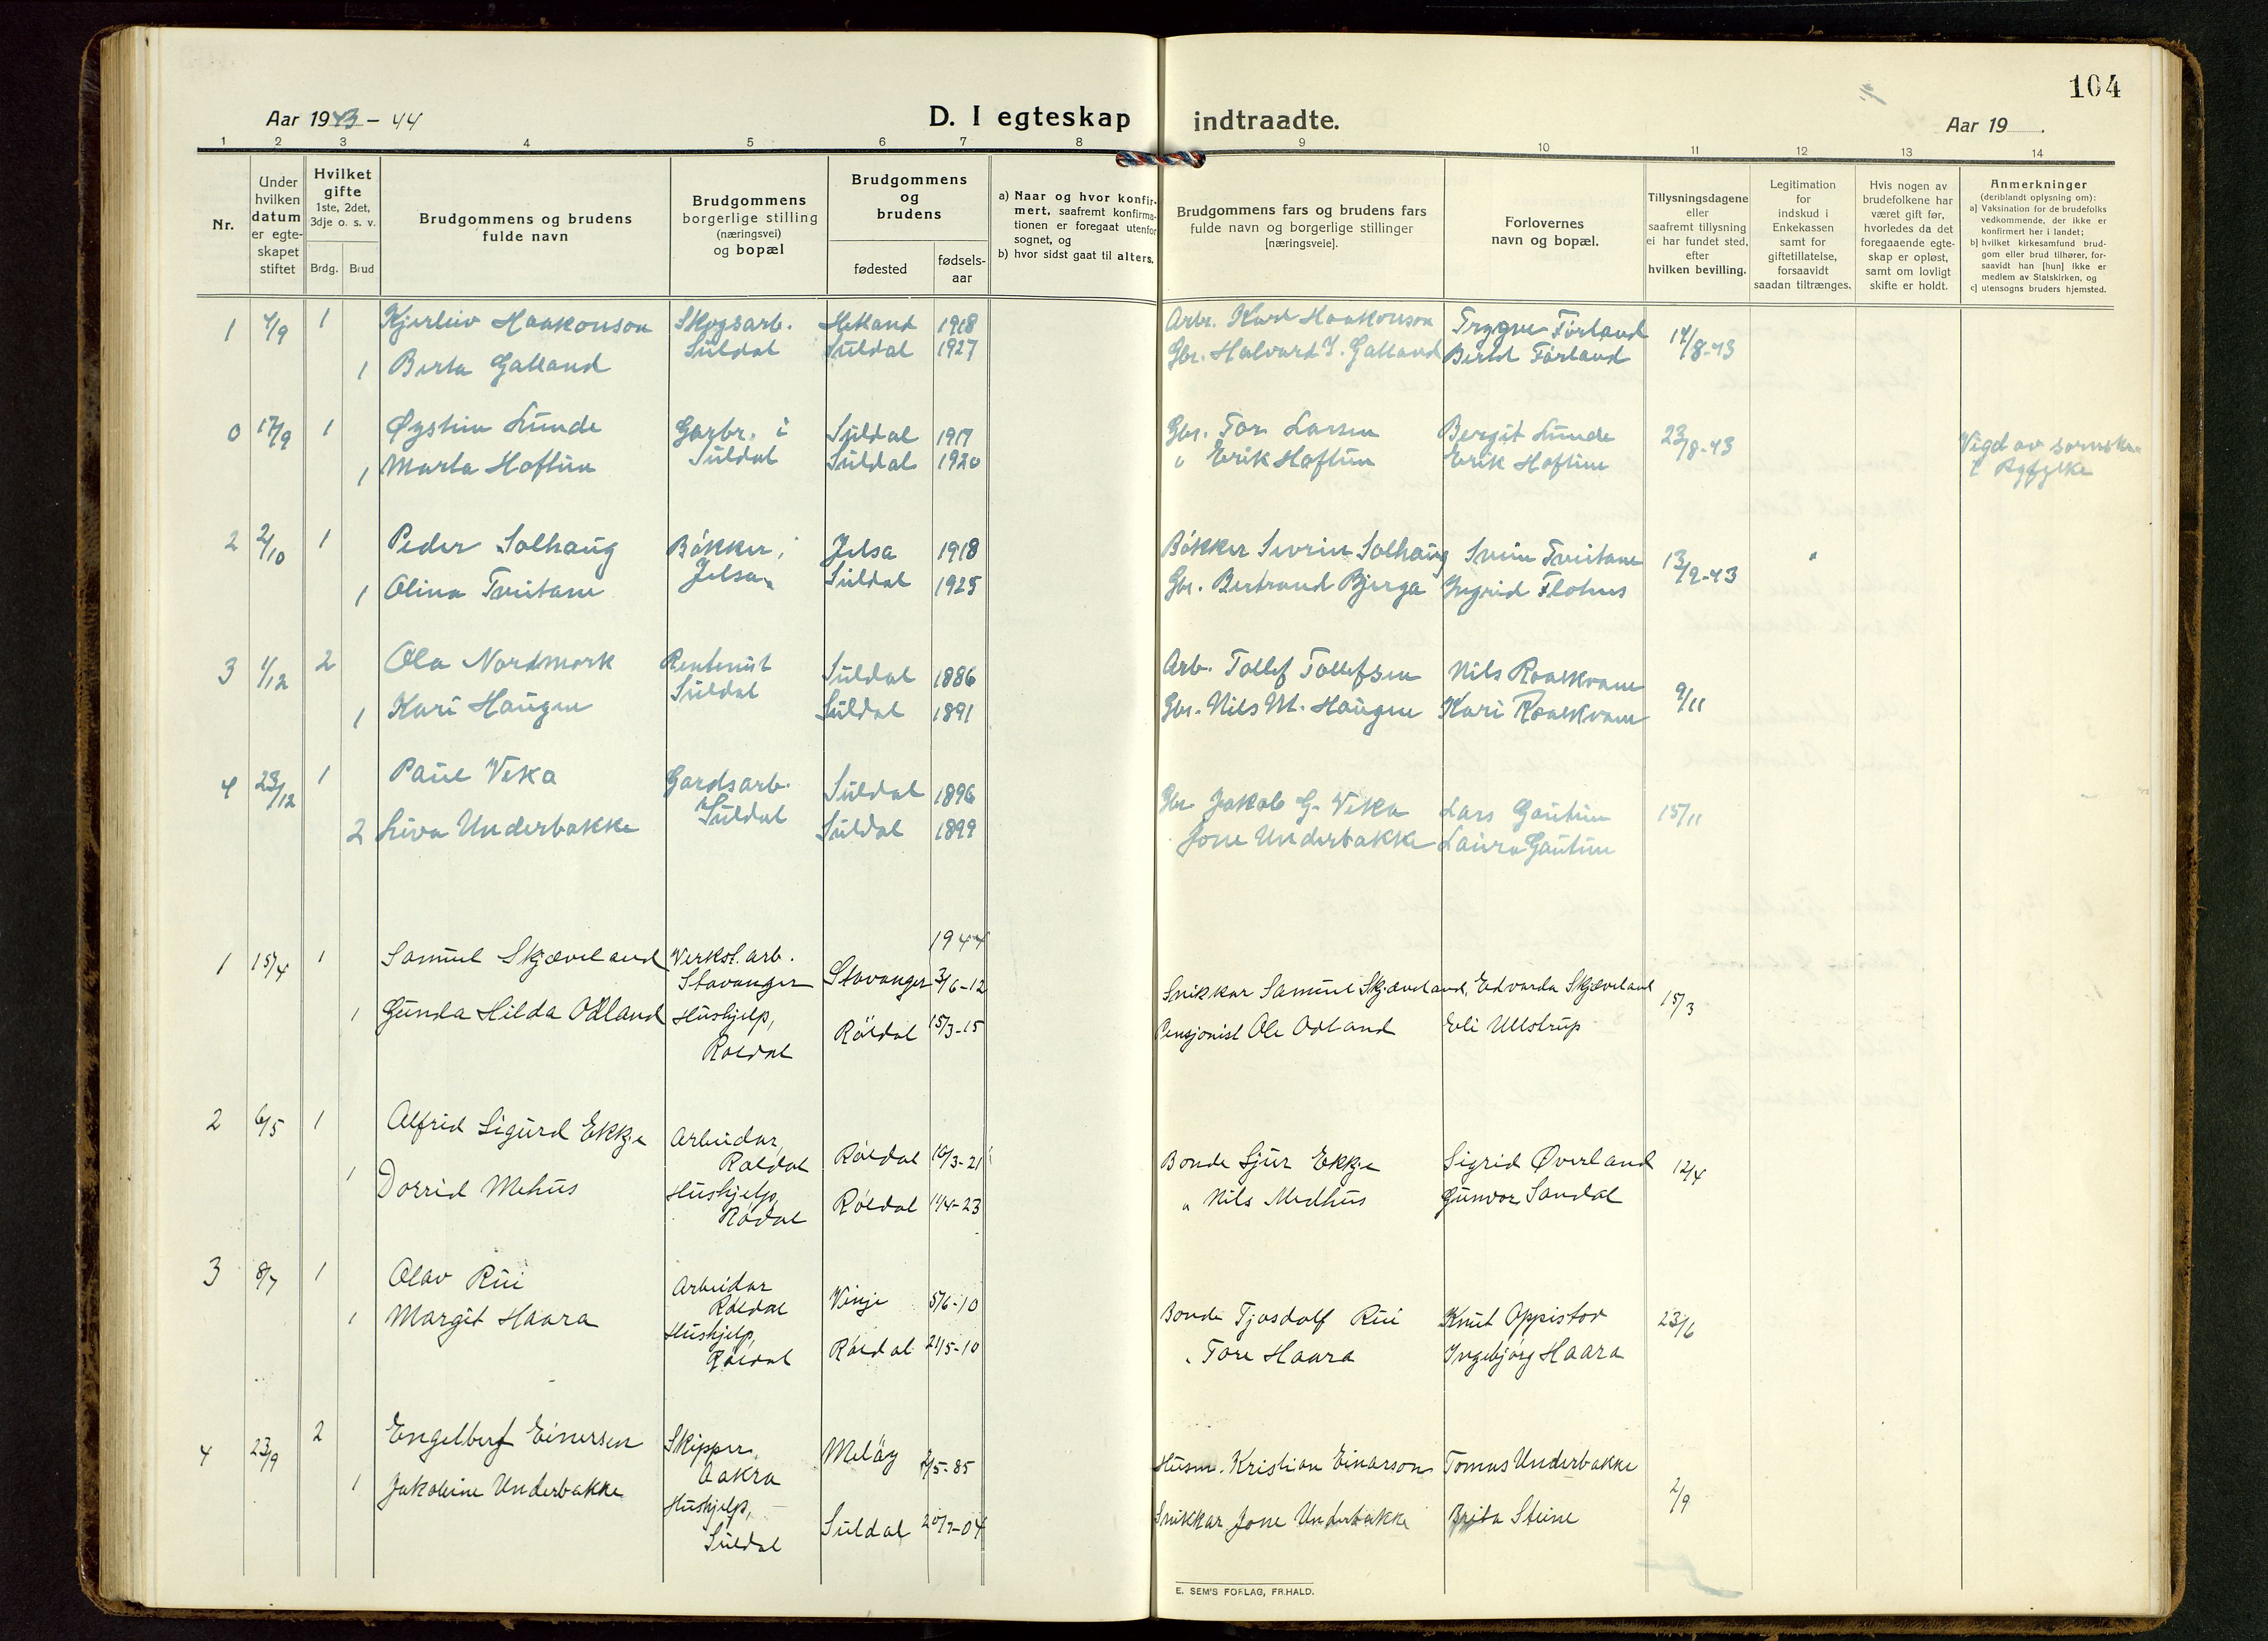 104
Aar 1943-44
D. I egteskap indtraadte.
Aar 19
1 2 3 4 5 6 7 8 9 10 11 12 13 14
Nr.
Under hvilken datum er egteskapet stiftet
Hvilket gifte 1ste, 2det, 3dje o. s. v.
Brdg. Brud
Brudgommens og brudens fulde navn
Brudgommens borgerlige stilling (næringsvei) og bopæl
Brudgommens og brudens
fødested
fødselsaar
a) Naar og hvor konfirmert, saafremt konfirmationen er foregaat utenfor sognet, og
b) hvor sidst gaat til alters.
Brudgommens fars og brudens fars fulde navn og borgerlige stillinger [næringsveie].
Forlovernes navn og bopæl.
Tillysningsdagene eller saafremt tillysning ei har fundet sted, efter hvilken bevilling.
Legitimation for indskud i Enkekassen samt for giftetillatelse, forsaavidt saadan tiltrænges.
Hvis nogen av brudefolkene har været gift før, hvorledes da det foregaaende egteskap er opløst, samt om lovligt skifte er holdt.
Anmerkninger (deriblandt oplysning om):
a] Vaksination for de brudefolks vedkommende, der ikke er konfirmert her i landet;
b] hvilket kirkesamfund brudgom eller brud tilhører, forsaavidt han [hun] ikke er medlem av Statskirken, og
c] utensogns bruders hjemsted.
1 4/9 1 Kjerleiv Haakonson Skogsarb. Hetland 1918 Arbr. Karl Haakonson Trygve Førland 14/8-43
1 Berta Galland Suldal Suldal 1927 Gbr. Halvard J. Galland Berta Førland
0 17/9 1 Øystein Lunde Garbr. i Suldal 1917 Gbr. Tor Larsen Bergit Lunde 23/8-43 Vigd av
1 Marta Hoftun Suldal Suldal 1920 " Erik Hoftun Erik Hoftun i Ryfylke
2 2/10 1 Peder Solhaug Bøkker, Jelsa 1918 Bøkker Sevrin Solhaug Svein Tveitane 13/9-43
1 Olina Tveitane Jelsa Suldal 1925 Gbr. Bertrand Bjerga Ingrid Flotnes
3 1/12 2 Ola Nordmork Rentenist Suldal 1886 Arb. Tollef Tollefsen Nils Roalkvam 9/11
1 Kari Haugen Suldal Suldal 1891 Gbr. Nils M. Haugen Kari Roalkvam
4 23/12 1 Paul Veka Gardsarb. Suldal 1896 Gbr Jakob G. Veka Lars Gautun 15/11
2 Liva Underbakke Suldal Suldal 1899 Jone Underbakke Laura Gautun
1944
1 15/4 1 Samuel Skjæveland Verkst.arb. Stavanger Stavanger 3/6-12 Snikkar Samuel Skjæveland, Edvarda Skjæveland 15/3
1 Gunda Hilda Odland Hushjelp, Røldal Røldal 15/3-15 Pensjonist Ole Odland Eli Ullstrup
2 6/5 1 Alfrid Sigurd Ekkje Arbeidar, Røldal Røldal 10/3-21 Bonde Sjur Ekkje Sigrid Øverland 12/4
1 Dorrid Mehus Hushjelp, Rødal Røldal 11/4-23 " Nils Medhus Gunvor Sandal
3 8/7 1 Olav Rui Arbeidar Røldal Vinje 5/6-10 Bonde Tjosdolf Rui Knut Oppistov 23/6
1 Margit Haara Hushjelp, Røldal Røldal 21/5-10 " Tore Haara Ingebjørg Haara
4 23/9 2 Engelbert Einersen Skipper, Aakra Meløy 2/5-85 Husm. Kristian Einarson Tomas Underbakke 2/9
1 Jakobine Underbakke Hushjelp, Suldal Suldal 20/7-04 Snikkar Jone Underbakke Brita Steine
E. SEM'S FORLAG, FR.HALD.